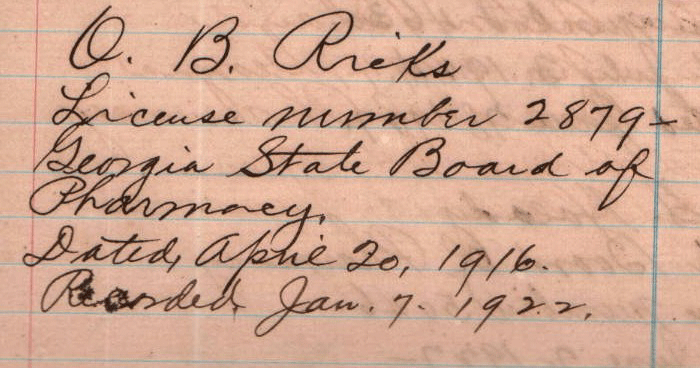 O. B. Ricks
License number 2879-
Georgia State Board of
Pharmacy.
Dated, April 20, 1916.
Recorded Jan. 7. 1922.